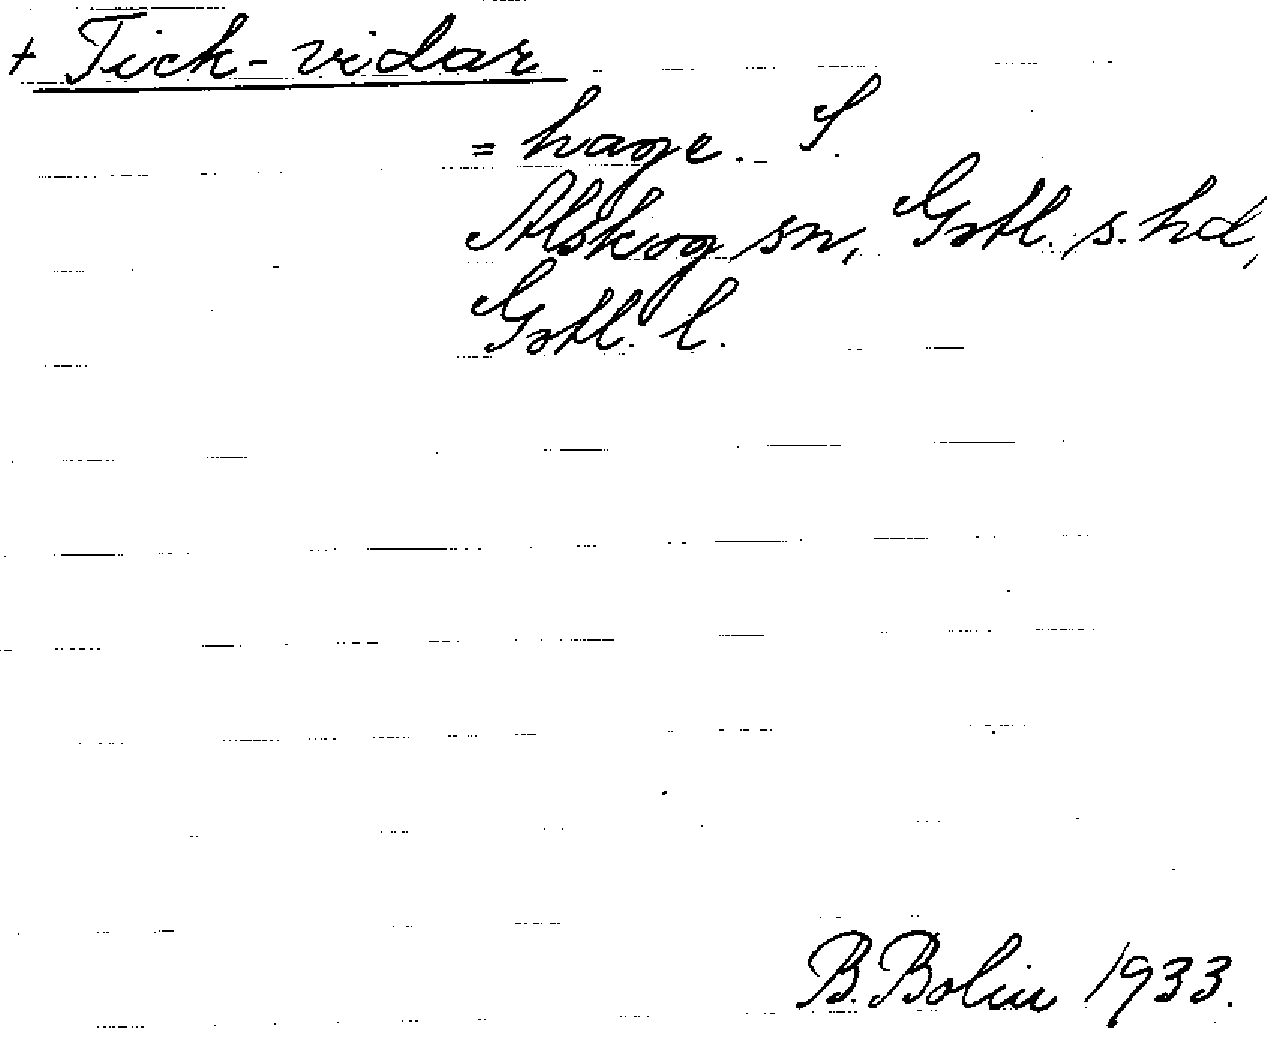 + Tick-vidar
= hage. S.
Alskog sn, Gotl. s. hd,
Gotl. l.
B. Bolin 1933.